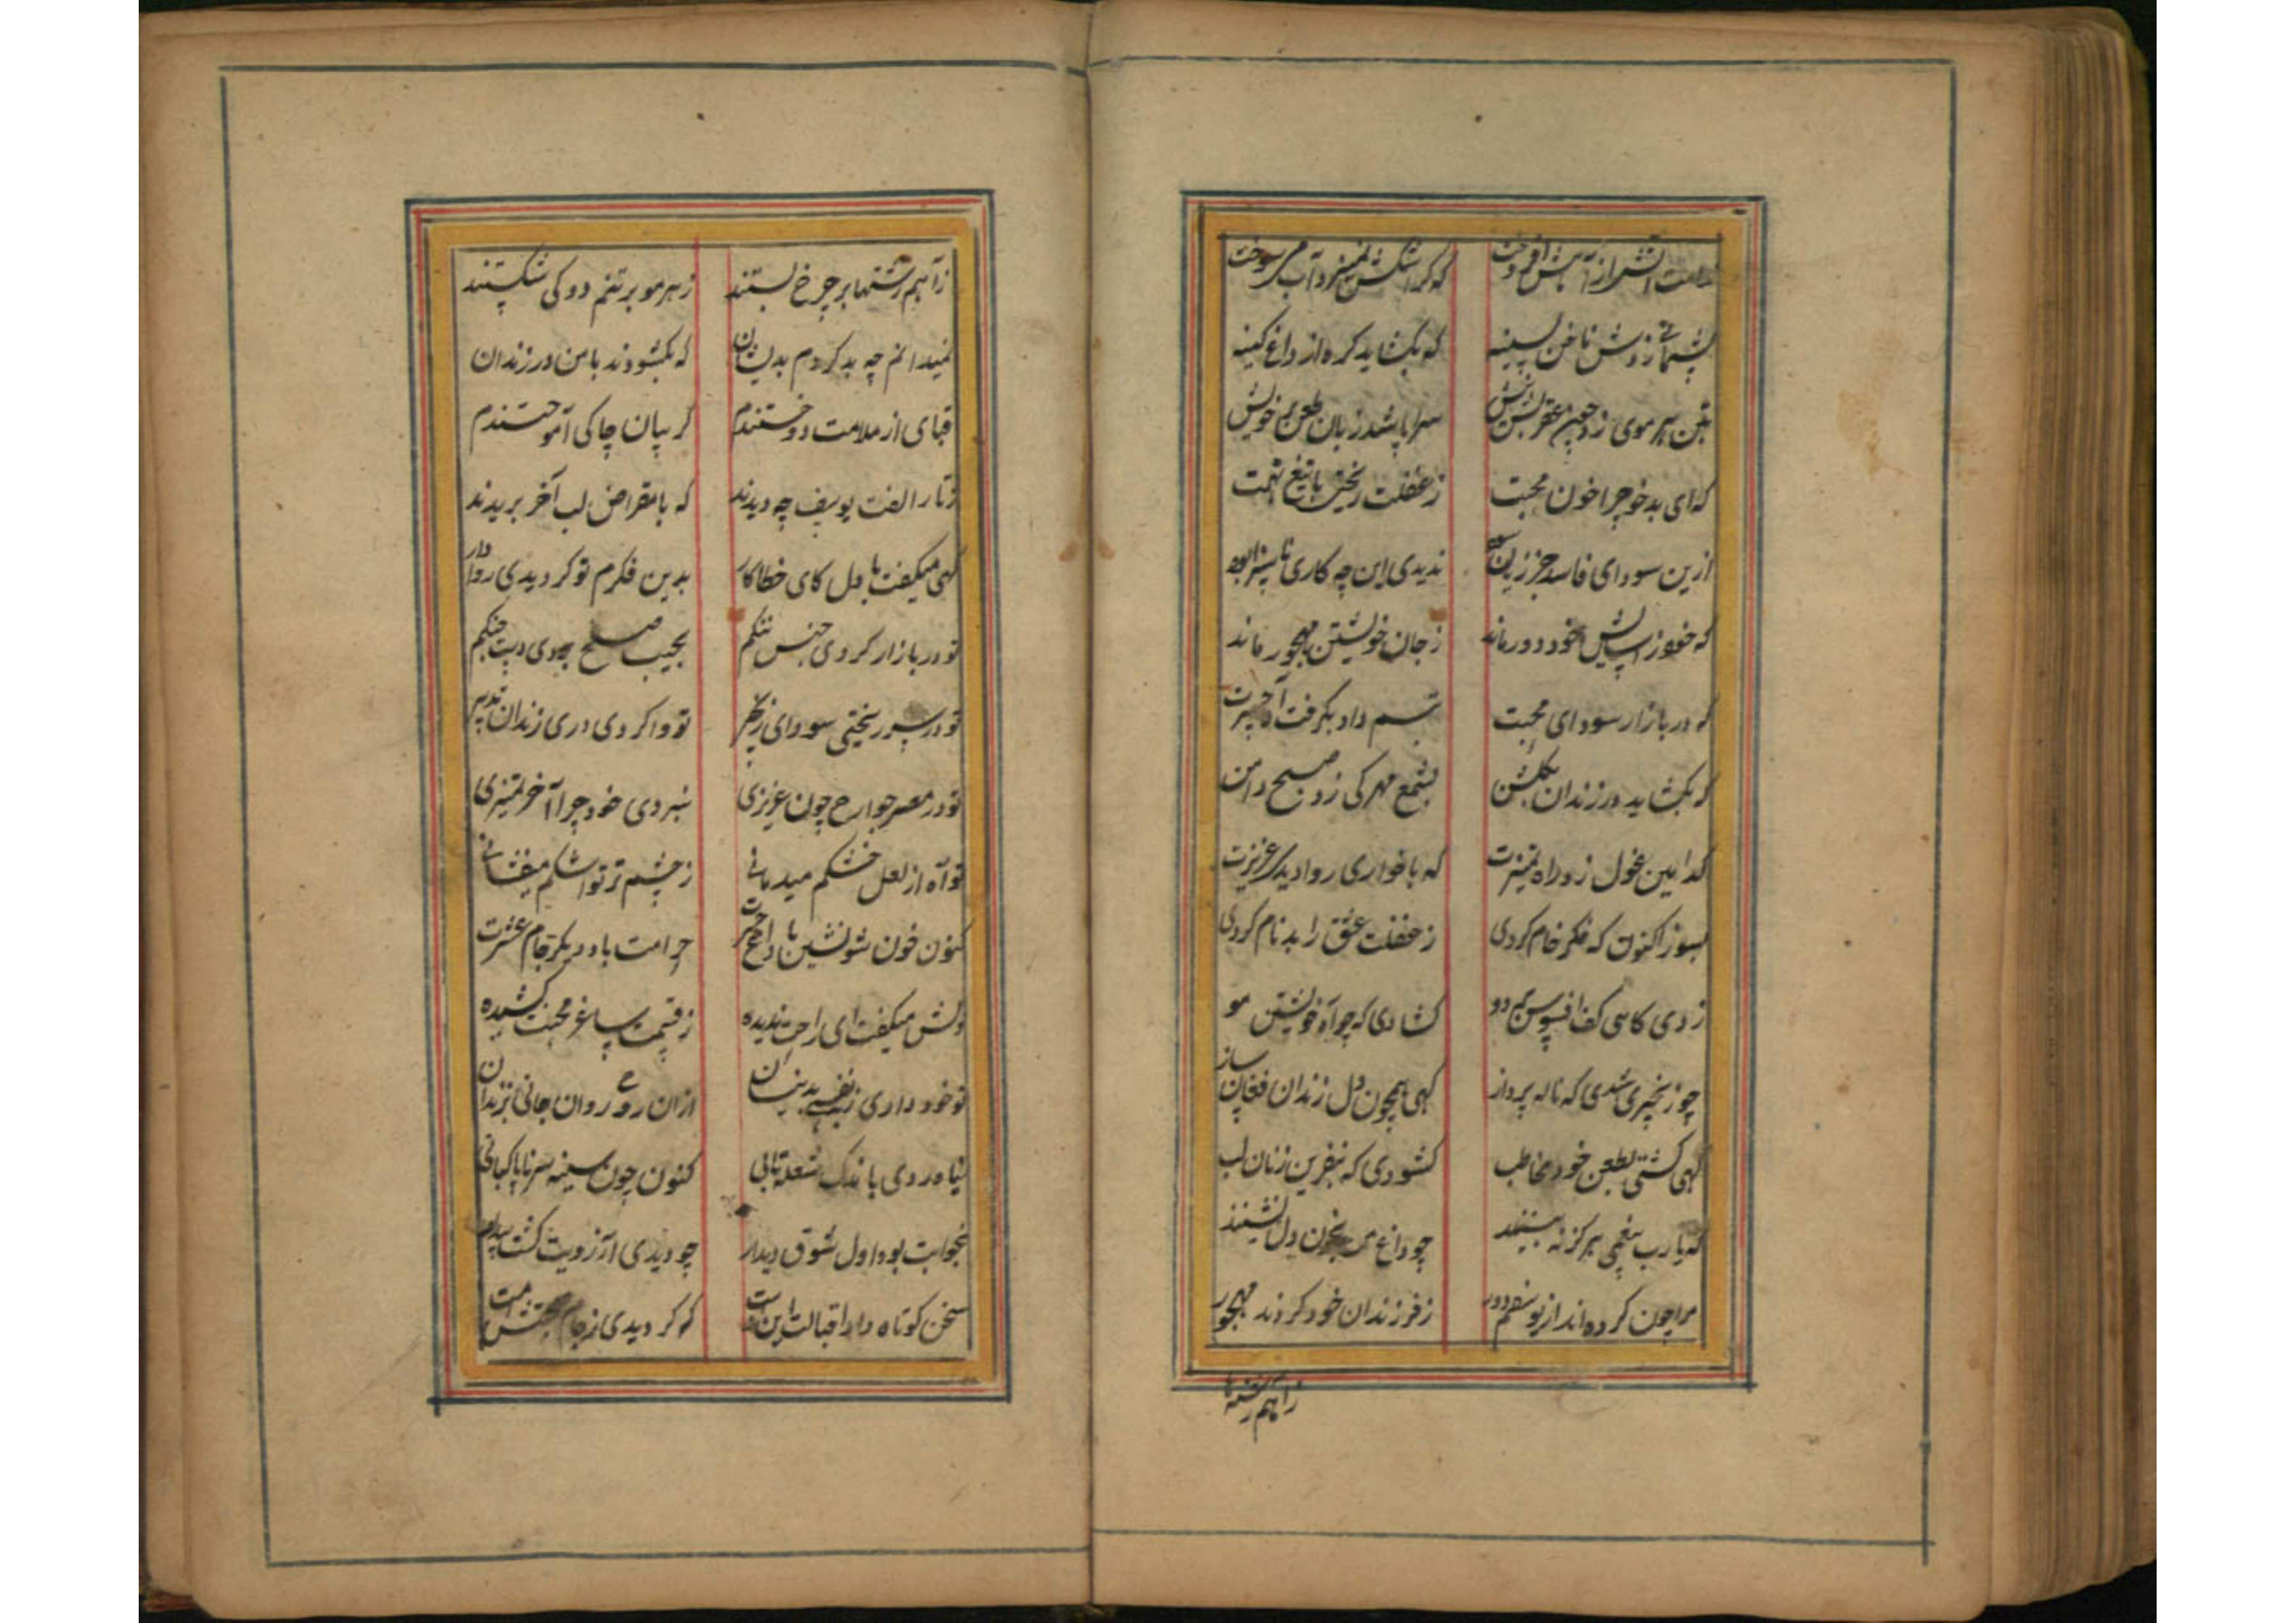 که گر اشکش نمیزد آب میسوخت
پشیمانی زدش ناخن بسینه    که بکشاید کره از داغ کینه
بتن هر موی زد چون عقربش نیش    سراپا شد زبان طعن بر خویش
که ای بدخو چرا خون محبت    ز غفلت ریختی با تیغ تهمت
ازین سودای فاسد جز زیان    ندیدی این چه کاری ناسزا بود
که خود را پیش خود دور ماند    ز جان خویشتن مهجور ماند
که در بازار سودای محبت    داد بکرفت
که بکشاید در زندان بکلشن    بشمع مهر کی زد صبح دامن
کدامین غول زد راه تمیزت    که با خواری روا دید عزیزت
بسوز اکنون که فکر خام کردی    ز غفلت عشق را بدنام کردی
زدی کاهی کف افسوس بر دو    کشادی که چو آه خویشتن مو
چو زنجیری شدی که ناله پرداز    کهی همچون دل زندان فغان ساز
کهی کشتی بطعن خود مخاطب    کشودی که بنفرین زنان لب
که یارب هرکز نه بینند    چو داغ من بخون دل نشینند
مرا چون کرده اند از یوسفم دور    ز فرزندان خود کردند مهجور
ز آهم رشتها
ز آهم رشتها بر چرخ بستند    ز هر مو بر تنم دوکی شکستند
نمیدانم چه بد کردم بدیشان    که بکشودند با من در زندان
قبای از ملامت دوختندم    کریبان چاکی آموختندم
ز تار الفت یوسف چه دیدند    که با مقراض لب آخر بریدند
کهی میکفت با دل کای خطاکار    بدین فکرم تو کردیدی روادار
تو در بازار کردی جنس ننکم    بجیب صلح بودی دست جنکم
تو در سر ریختی سودای زنجیر    تو وا کردی دری زندان تدبیر
تو در مصر جوارح چون عزیزی    نبردی خود چرا آخر تمیزی
تو آه از لعل خشکم میدمانی    ز چشم تر تو اشکم میفشانی
کنون خون شو نشین با داغ حسرت    حرامت باد دیکر جام عشرت
دلش میکفت ای راحت ندیده    ز قسمت ساغر محنت کشیده
تو خود داری    ازان روی روان جانی بزندان
کنون چون سینه
بخوابت بود اول شوق دیدار    چو دیدی آرزویت کشت بیدار
سخن کوتاه دار اقبالت این است    که کردیدی ز جام